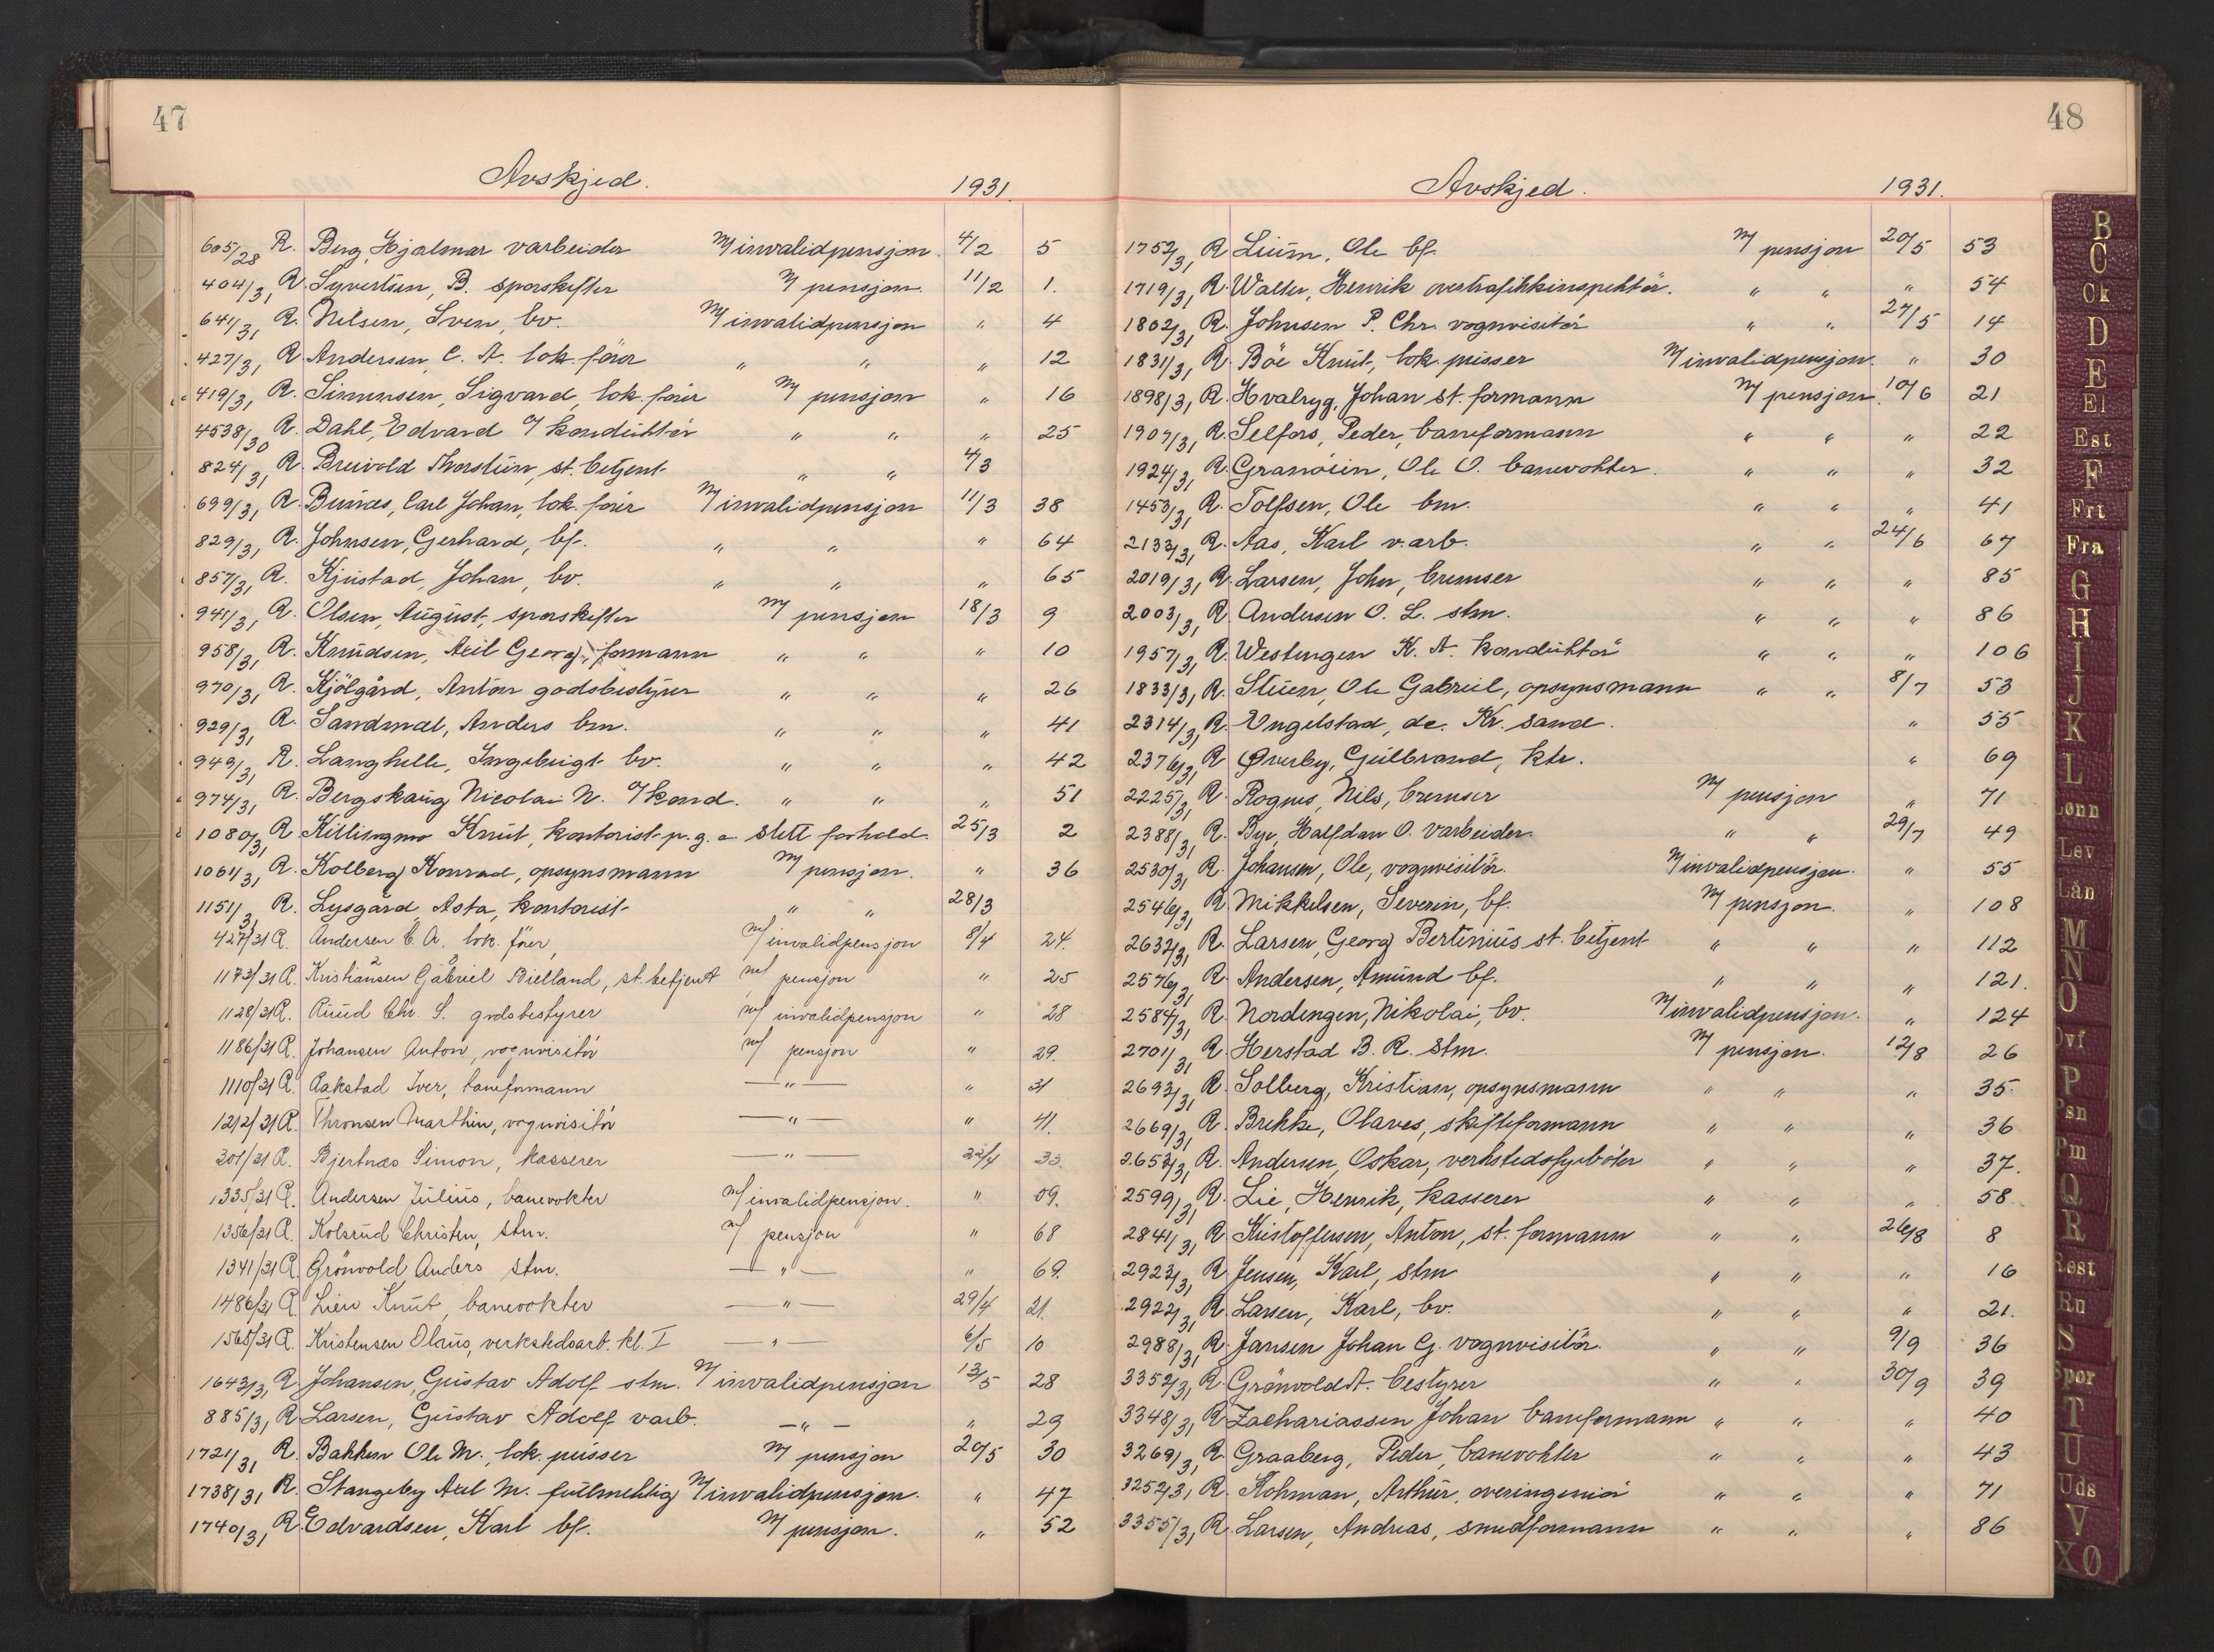 47
Avskjed. 1931.
605/28 R. Berg, Hjalmar varbeider m/invalidpensjon. 4/2 5
404/31 R. Syvertsen, B. sporskifter m/ pensjon. 11/2 1.
641/31 R. Nilsen, Sven, bv. m/invalidpensjon " 4
427/31 R. Andersen, C. A. lok. förer " " " 12
419/31 R. Simensen, Sigvard, lok. förer m/ pensjon " 16
4538/30 R. Dahl, Edvard o/konduktör " " " 25
824/31 R. Breivold Thorstein, st. betjent " " 4/3
699/31 R. Bunæs, Carl Johan, lok. förer m/invalidpensjon 11/3 38
829/31 R. Johnsen, Gerhard, bf. " " " 64
857/31 R. Kjustad, Johan, bv. " " " 65
941/31 R. Olsen, August, sporskifter m/ pensjon 18/3 9
958/31 R. Knudsen, Axel Georg, formann " " " 10
970/31 R. Kjölgård, Anton godsbestyrer " " " 26
929/31 R. Sandmæl, Anders bm. " " " 41
949/31 R. Langhelle, Ingebrigt bv. " " " 42
974/31 R. Bergskaug Nicolai N. o/kond. " " " 51
1080/31 R. Killingmo Knut, kontorist p.g.a slett forhold. 25/3 2
1064/31 R. Kolberg Konrad, opsynsmann m/ pensjon. " 36
1151/31 R. Lysgård Asta, kontorist " " 28/3
427/31 R. Andersen C. A. lok. förer, m/invalidpensjon 8/4 24.
1173/31 R. Kristiansen Gabriel Bielland, st. betjent m/ pensjon " 25
1128/31 R. Ruud Chr. S. godsbestyrer m/ invalidpensjon " 28
1186/31 R. Johansen Anton, vognvisitör m/ pensjon " 29.
1110/31 R. Rakstad Iver, baneformann — " — " 31
1212/31 R. Thronsen Marthin, vognvisitör — " — " 41.
301/31 R. Bjertnæs Simon, kasserer — " — 22/4 33.
1335/31 R. Andersen Julius, banevokter m/invalidpensjon. " 59.
1356/31 R. Kolsrud Christen, stm. m/ pensjon " 68
1341/31 R. Grönvold Anders stm. — " — " 69.
1486/31 R. Lien Knut, banevokter — " — 29/4 21.
1565/31 R. Kristensen Olaus, verkstedsarb. kl. I — " — 6/5 10
1643/31 R. Johansen, Gustav Adolf stm. m/invalidpensjon 13/5 28
885/31 R. Larsen, Gustav Adolf varb. — " — " 29
1721/31 R. Bakken Ole M., lok. pusser m/ pensjon 20/5 30
1738/31 R. Stangeby Axel M. fullmektig m/invalidpensjon. " 47
1740/31 R. Edvardsen, Karl bf. m/ pensjon. " 52
48
Avskjed. 1931.
1752/31 R. Lium, Ole bf. m/ pensjon 20/5 53
1719/31 R. Walter, Henrik overtrafikkinspektör. " " " 54
1802/31 R. Johnsen P. Chr. vognvisitör " " 27/5 14
1831/31 R. Böe Knut, lok. pusser m/invalidpensjon. " 30
1898/31 R. Hvalryg, Johan st. formann m/ pensjon. 10/6 21
1907/31 R. Selfors, Peder, baneformann " " " 22
1924/31 R. Granöien, Ole O. banevokter. " " " 32
1453/31 R. Tolfsen, Ole bm. " " " 41
2133/31 R. Aas, Karl v.arb. " " 24/6 67
2019/31 R. Larsen, John, bremser " " " 85
2003/31 R. Andersen O. L. stm. " " " 86
1957/31 R. Westengen K. A. konduktör " " " 106
1833/31 R. Stuen, Ole Gabriel, opsynsmann " " 8/7 53
2314/31 R. Engelstad, dc. Kr. sand. " 55
2376/31 R. Øverby, Gulbrand, ktr. " 69
2225/31 R. Rognes, Nils, bremser m/ pensjon " 71
2388/31 R. Bye, Halfdan O. varbeider. " " 29/7 49
2530/31 R. Johansen, Ole, vognvisitör. m/invalidpensjon. " 55
2546/31 R. Mikkelsen, Severin, bf. m/ pensjon. " 108
2632/31 R. Larsen, Georg Bertinius st. betjent " " " 112
2576/31 R. Andersen, Amund bf. " " " 121.
2584/31 R. Nordengen, Nikolai, bv. m/invalidpensjon. " 124
2701/31 R. Herstad B. R. stm. m/ pensjon. 12/8 26
2693/31 R. Solberg, Kristian, opsynsmann " " " 35.
2669/31 R. Brekke, Olaves, skifteformann " " " 36
2652/31 R. Andersen, Oskar, verkstedsfyrböter " " " 37.
2599/31 R. Lie, Henrik, kasserer " " " 58
2841/31 R. Kristoffersen, Anton, st. formann " " 26/8 8
2923/31 R. Jensen, Karl, stm " " " 16
2922/31 R. Larsen, Karl, bv. " " " 21.
2988/31 R. Jansen Johan G. vognvisitör. " " 9/9 36
3352/31 R. Grönvold A. bestyrer " " 30/9 39
3348/31 R. Zachariassen Johan baneformann " " " 40
3269/31 R. Graaberg, Peder, banevokter " " " 43
3252/31 R. Hohman, Arthur, overingeniör " " " 71
3355/31 R. Larsen, Andreas, smedformann " " " 86
B
C
Ck
D
E
El
Est
F
Frt
Fra
G
H
I
J
K
L
Lønn
Lev
Lån
M
N
O
Ovf
P
Psn
Pm
Q
R
Rest
Ru
S
Spor
T
U
Uds
V
X Ø